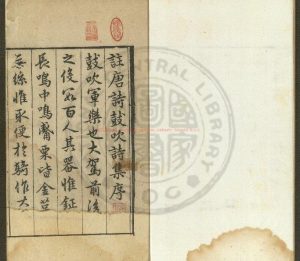 註唐詩鼓吹詩集序
鼓吹軍樂也大駕前後
之使百人其器惟鉦
長鳴中鳴觱栗皆金石
無絲惟取便於騎作大
CENTRAL LIBRARY